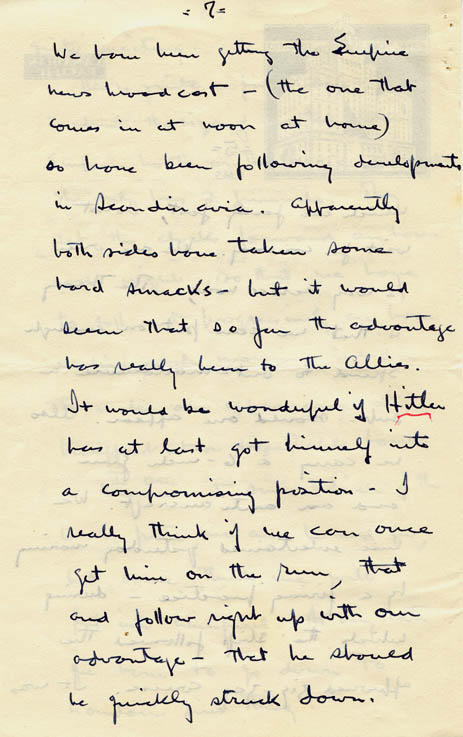 = 7 =
We have been getting the Empire
news broadcast – (the one that
comes in at noon at home)
so have been following developments
in Scandinavia. Apparently
both sides have taken some
hard smacks – but it would
seem that so far the advantage
has really been to the Allies.
It would be wonderful if Hitler
has at last got himself into
a compromising position – I
really think if we can once
get him on the run, that
and follow right up with our
advantage – that he should
be quickly struck down.